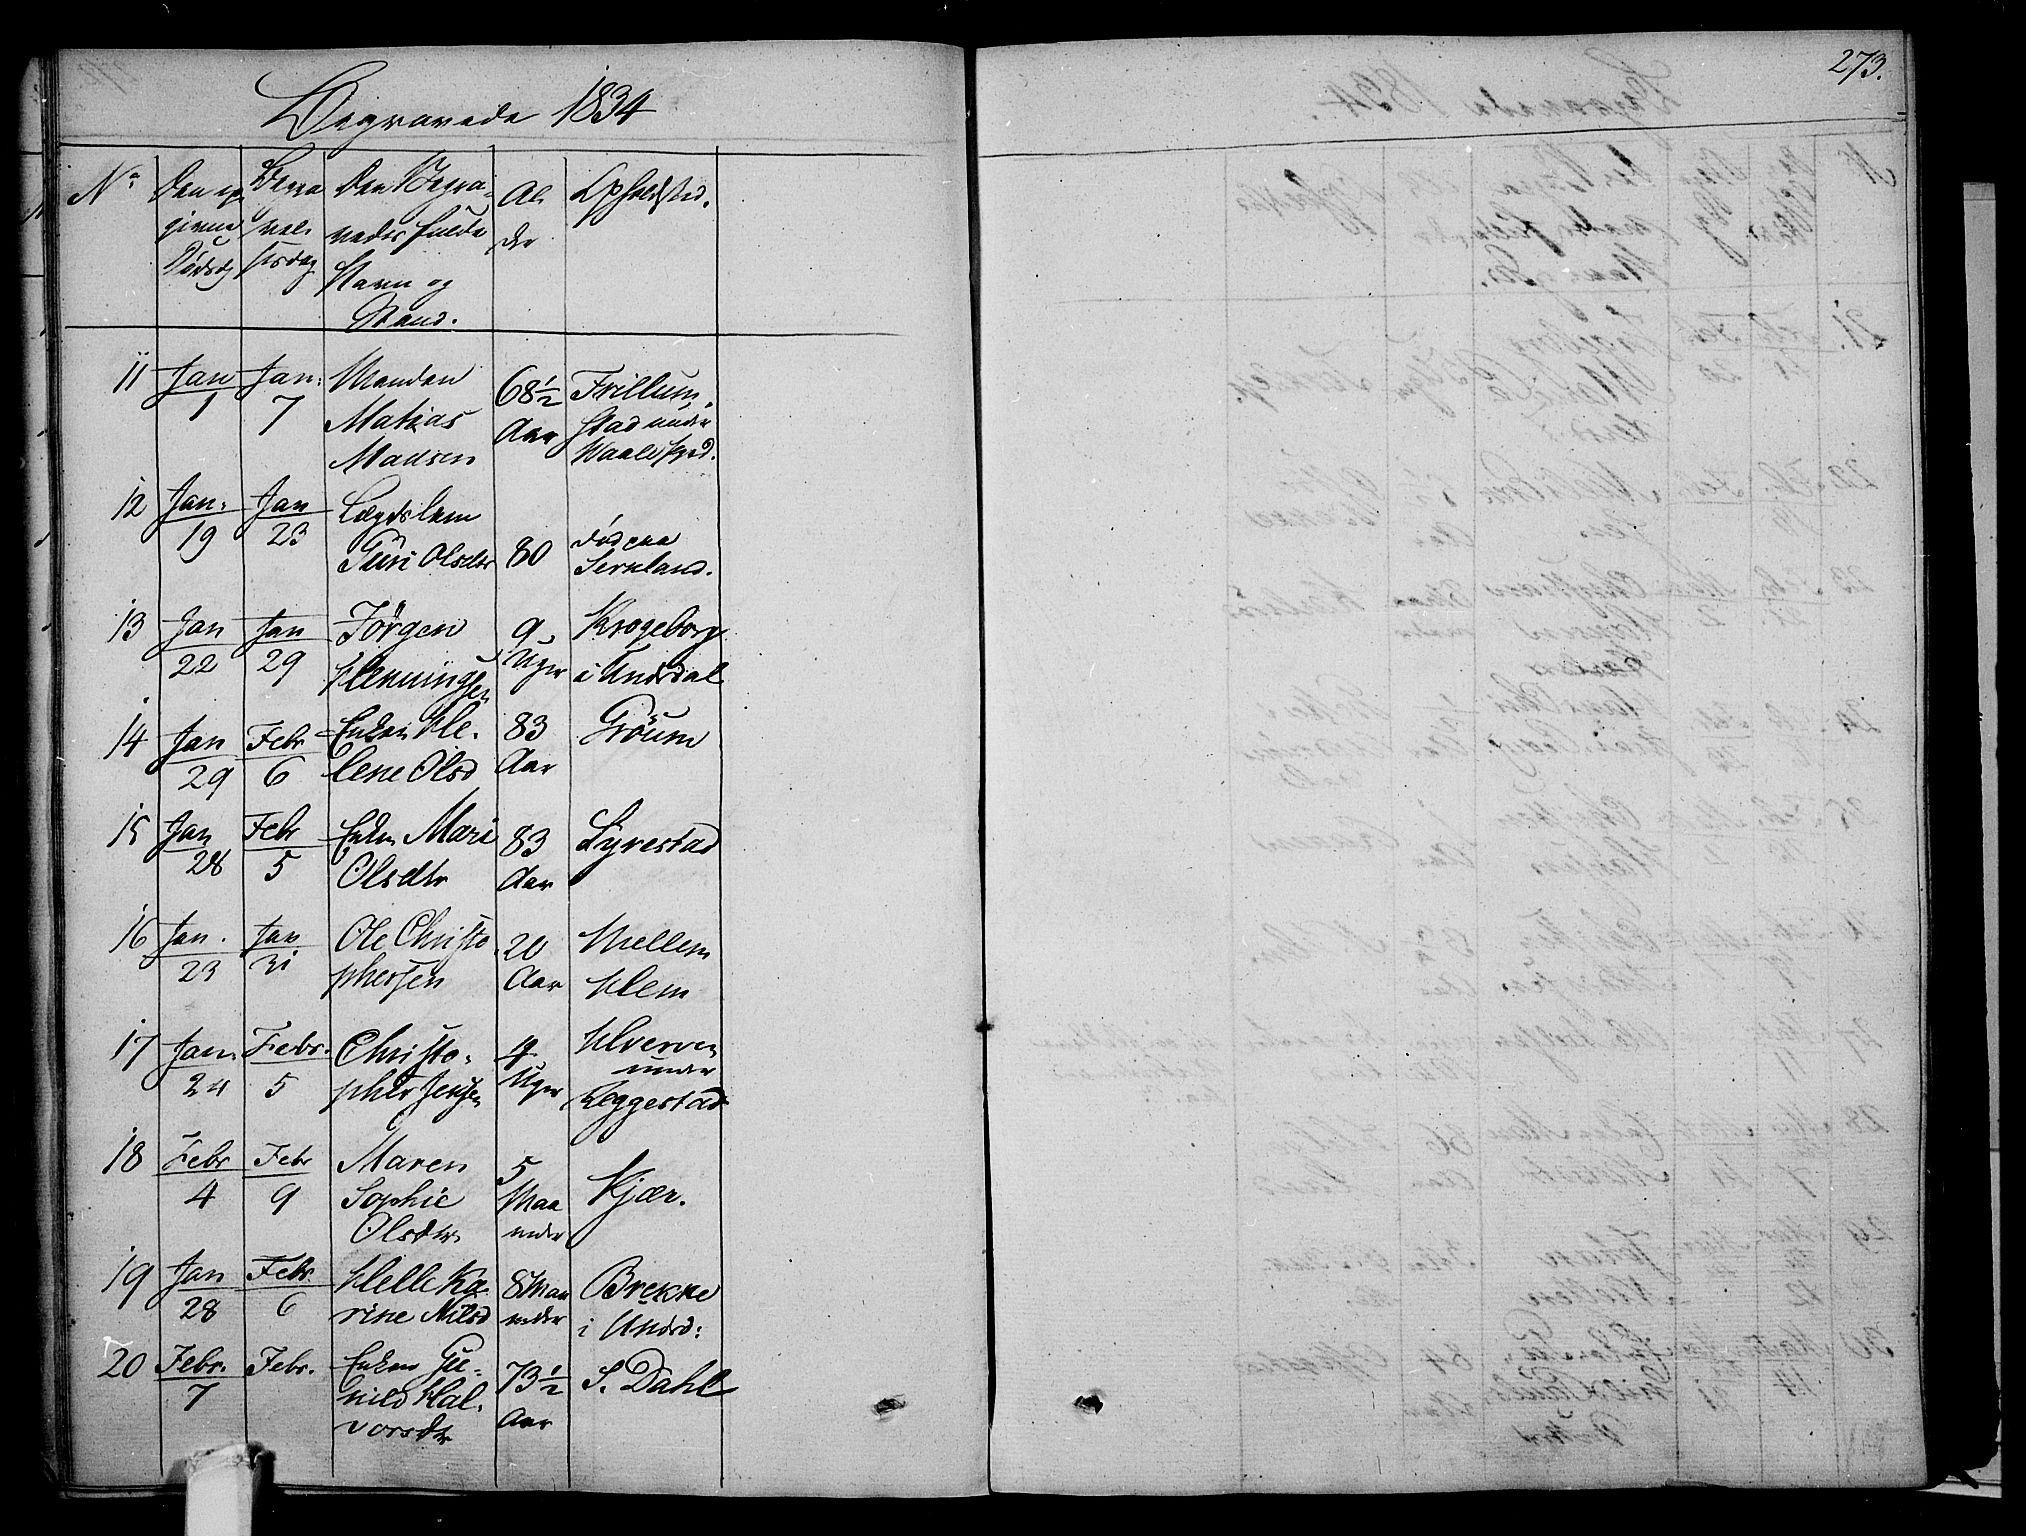 273.
Begravede 1834
No
Den op
givne
Dødsdg
Begra
vel
sesdag
Den Begra-
vedes fulde
Navn og
Stand.
Al
der
Opholdsted.
11 Jan 1 Jan: 7 Manden
Matias
Madsen
68½
Aar
Frillum-
stad under
12 Jan: 19 Jan 23 Lægdslem
Guri Olsdtr
80
død paa
13 Jan 22 Jan 29 Jørgen
Henningsen
9
Uger
Krogeborg
i Undrdal
14 Jan 29 Febr 6 Enken He-
lene Olsd
83
Aar
Grøum
15 Jan 28 Febr 5 Enken Mari
Olsdtr
83
Aar
Lyrestad
16 Jan. 23 Jan 31 Ole Christo
phersen
20
Aar
Mellem
Hem
17 Jan. 24 Febr. 5 Christo-
pher Jensen
4
Uger
under
Heggestad
18 Febr 4 Febr 9 Maren
Sophie
Olsdtr
5
Maa
neder
Kjær.
19 Jan 28 Febr. 6 Helle Ka
rine Nilsd
8 Maa
neder
Brekke
i Undrd:
20 Febr. 7 Febr. Enken Gu-
nild Hal-
vorsdtr
73½
Aar
S. Dahl